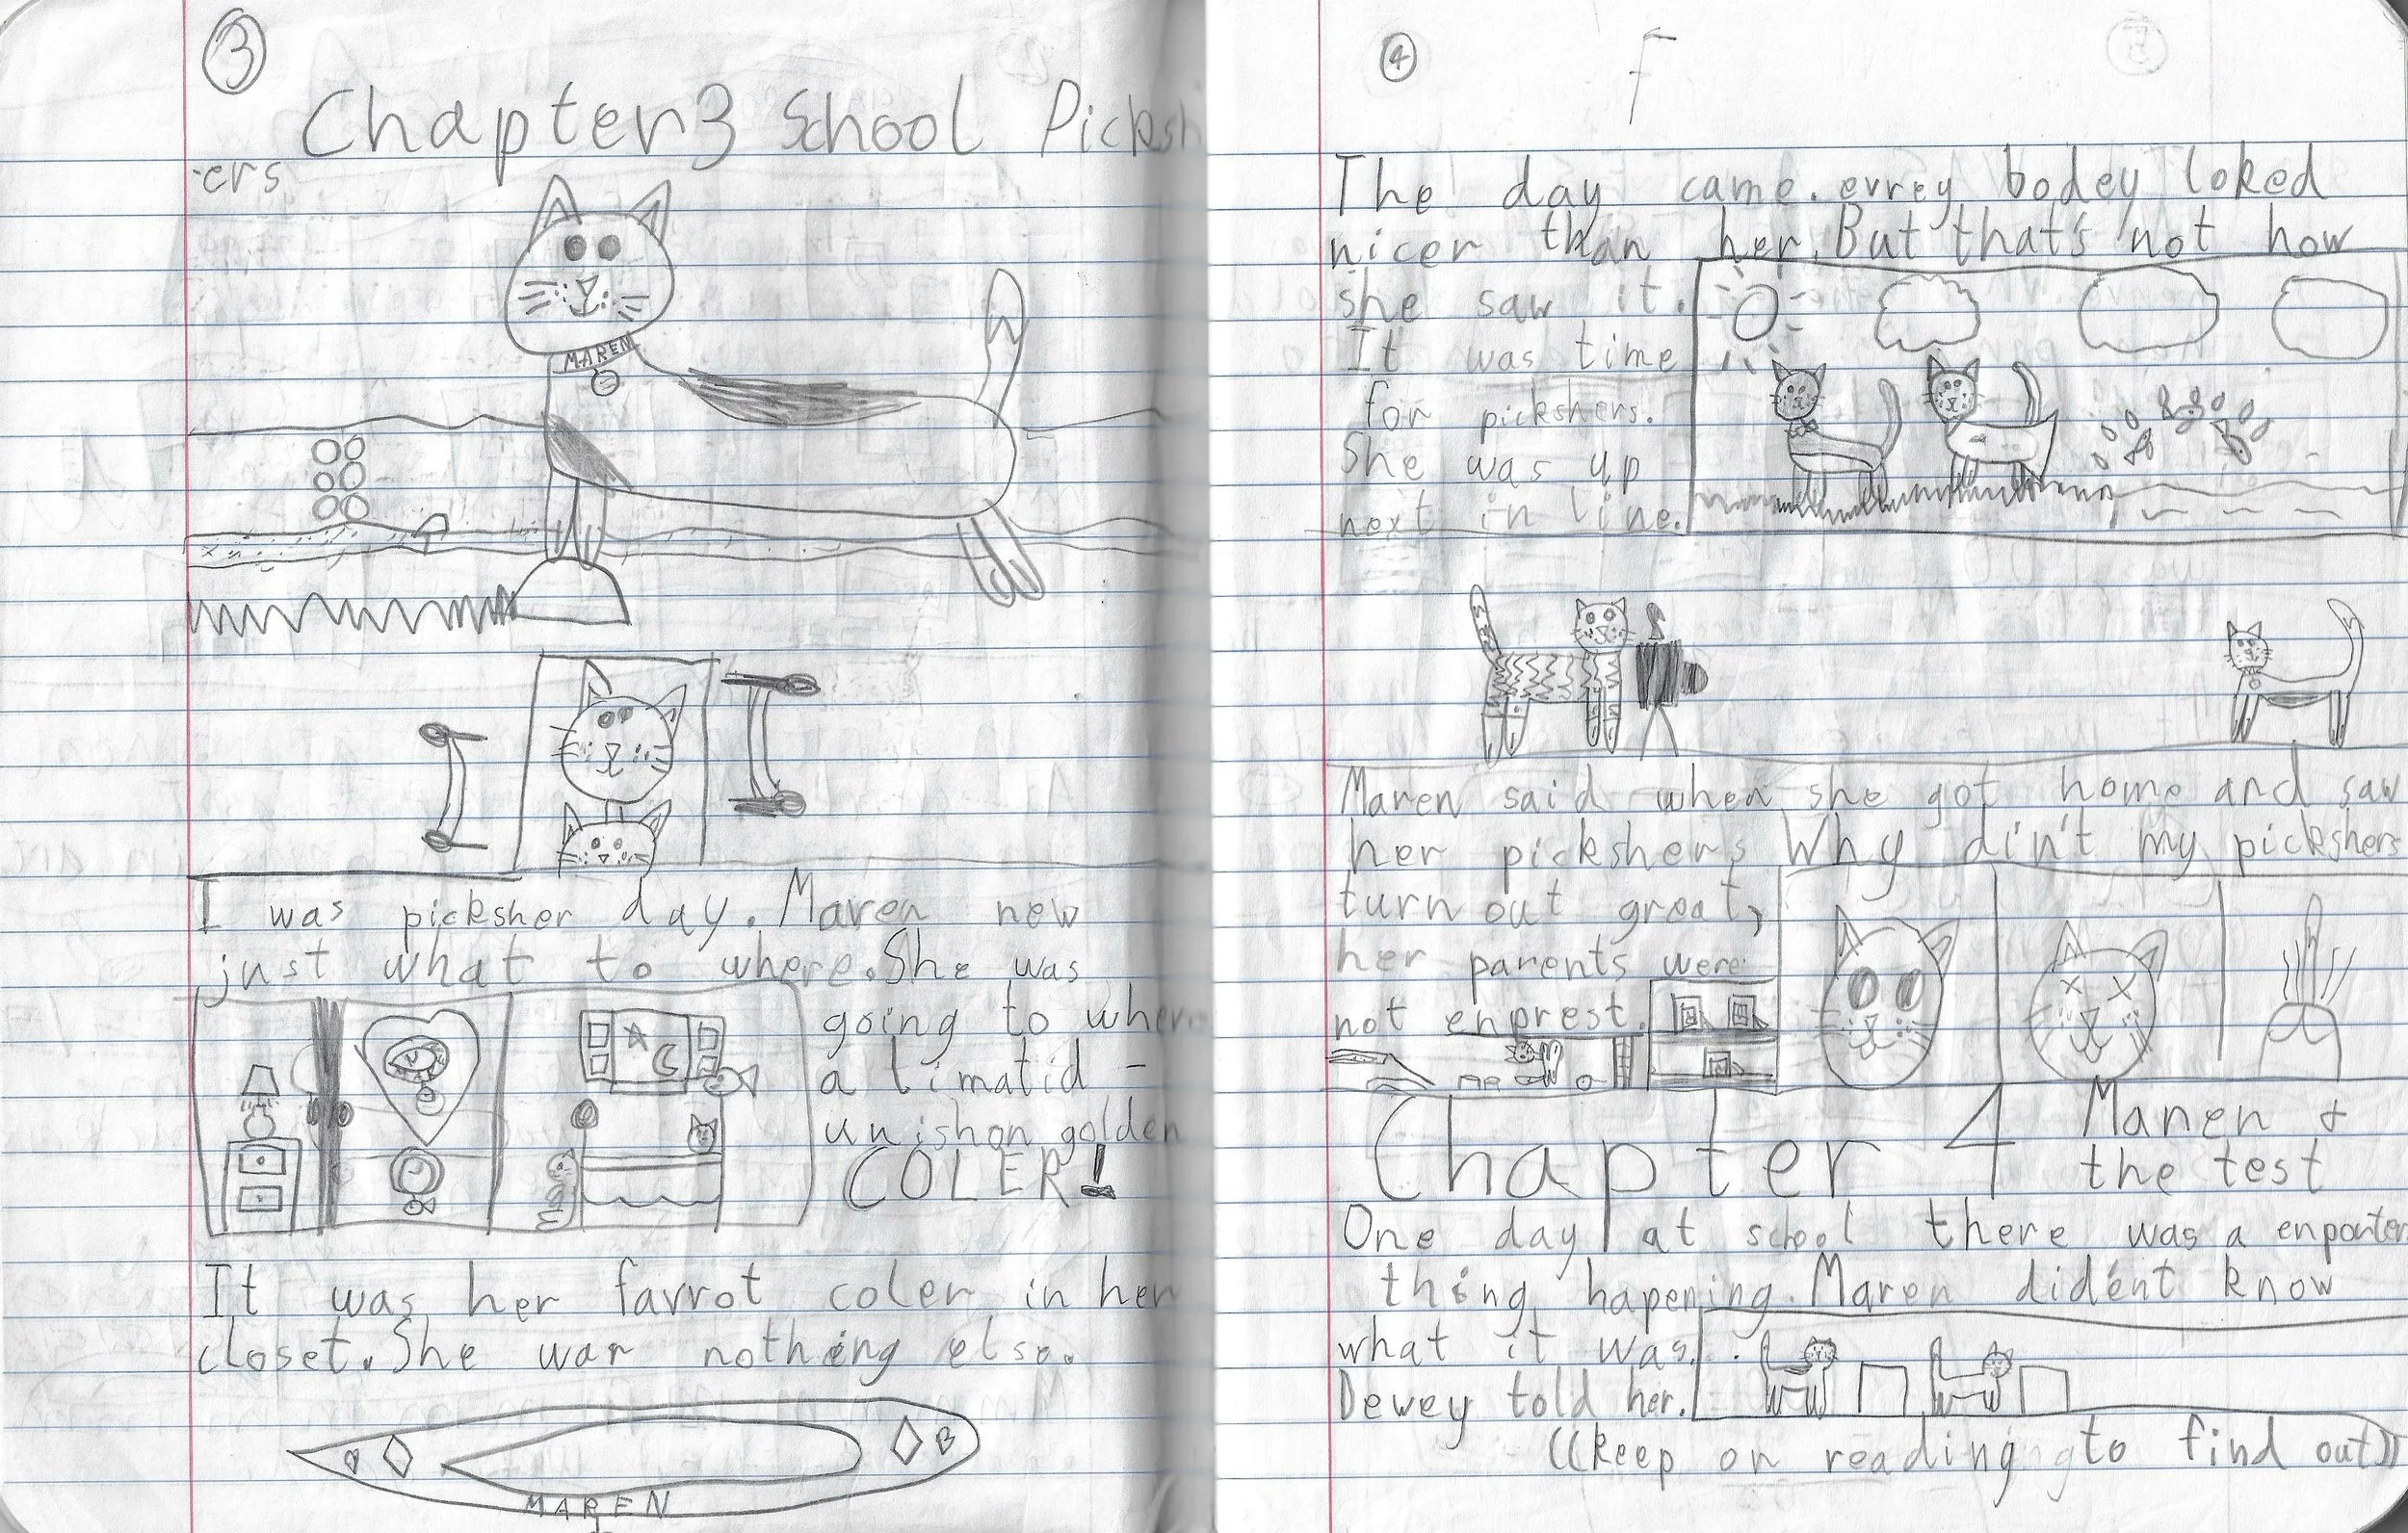 3
Chapter 3 School Picksh
-ers
MAREN
I was picksher day. Maren new
just what to where. She was
going to where
a limatid -
unishon golden
COLER!
It was her favrot coler in her
closet. She war nothing else.
MAREN
4
F
The day came. evrey bodey loked
nicer than her. But that's not how
she saw it.
It was time
for pickshers.
She was up
next in line.
Maren said when she got home and saw
her pickshers Why din't my pickshers
turn out great,
her parents were
not enprest.
Chapter 4 Maren &
the test
One day at school there was a enporten
thing hapening. Maren dident know
what it was.
Dewey told her.
((keep on reading to find out))